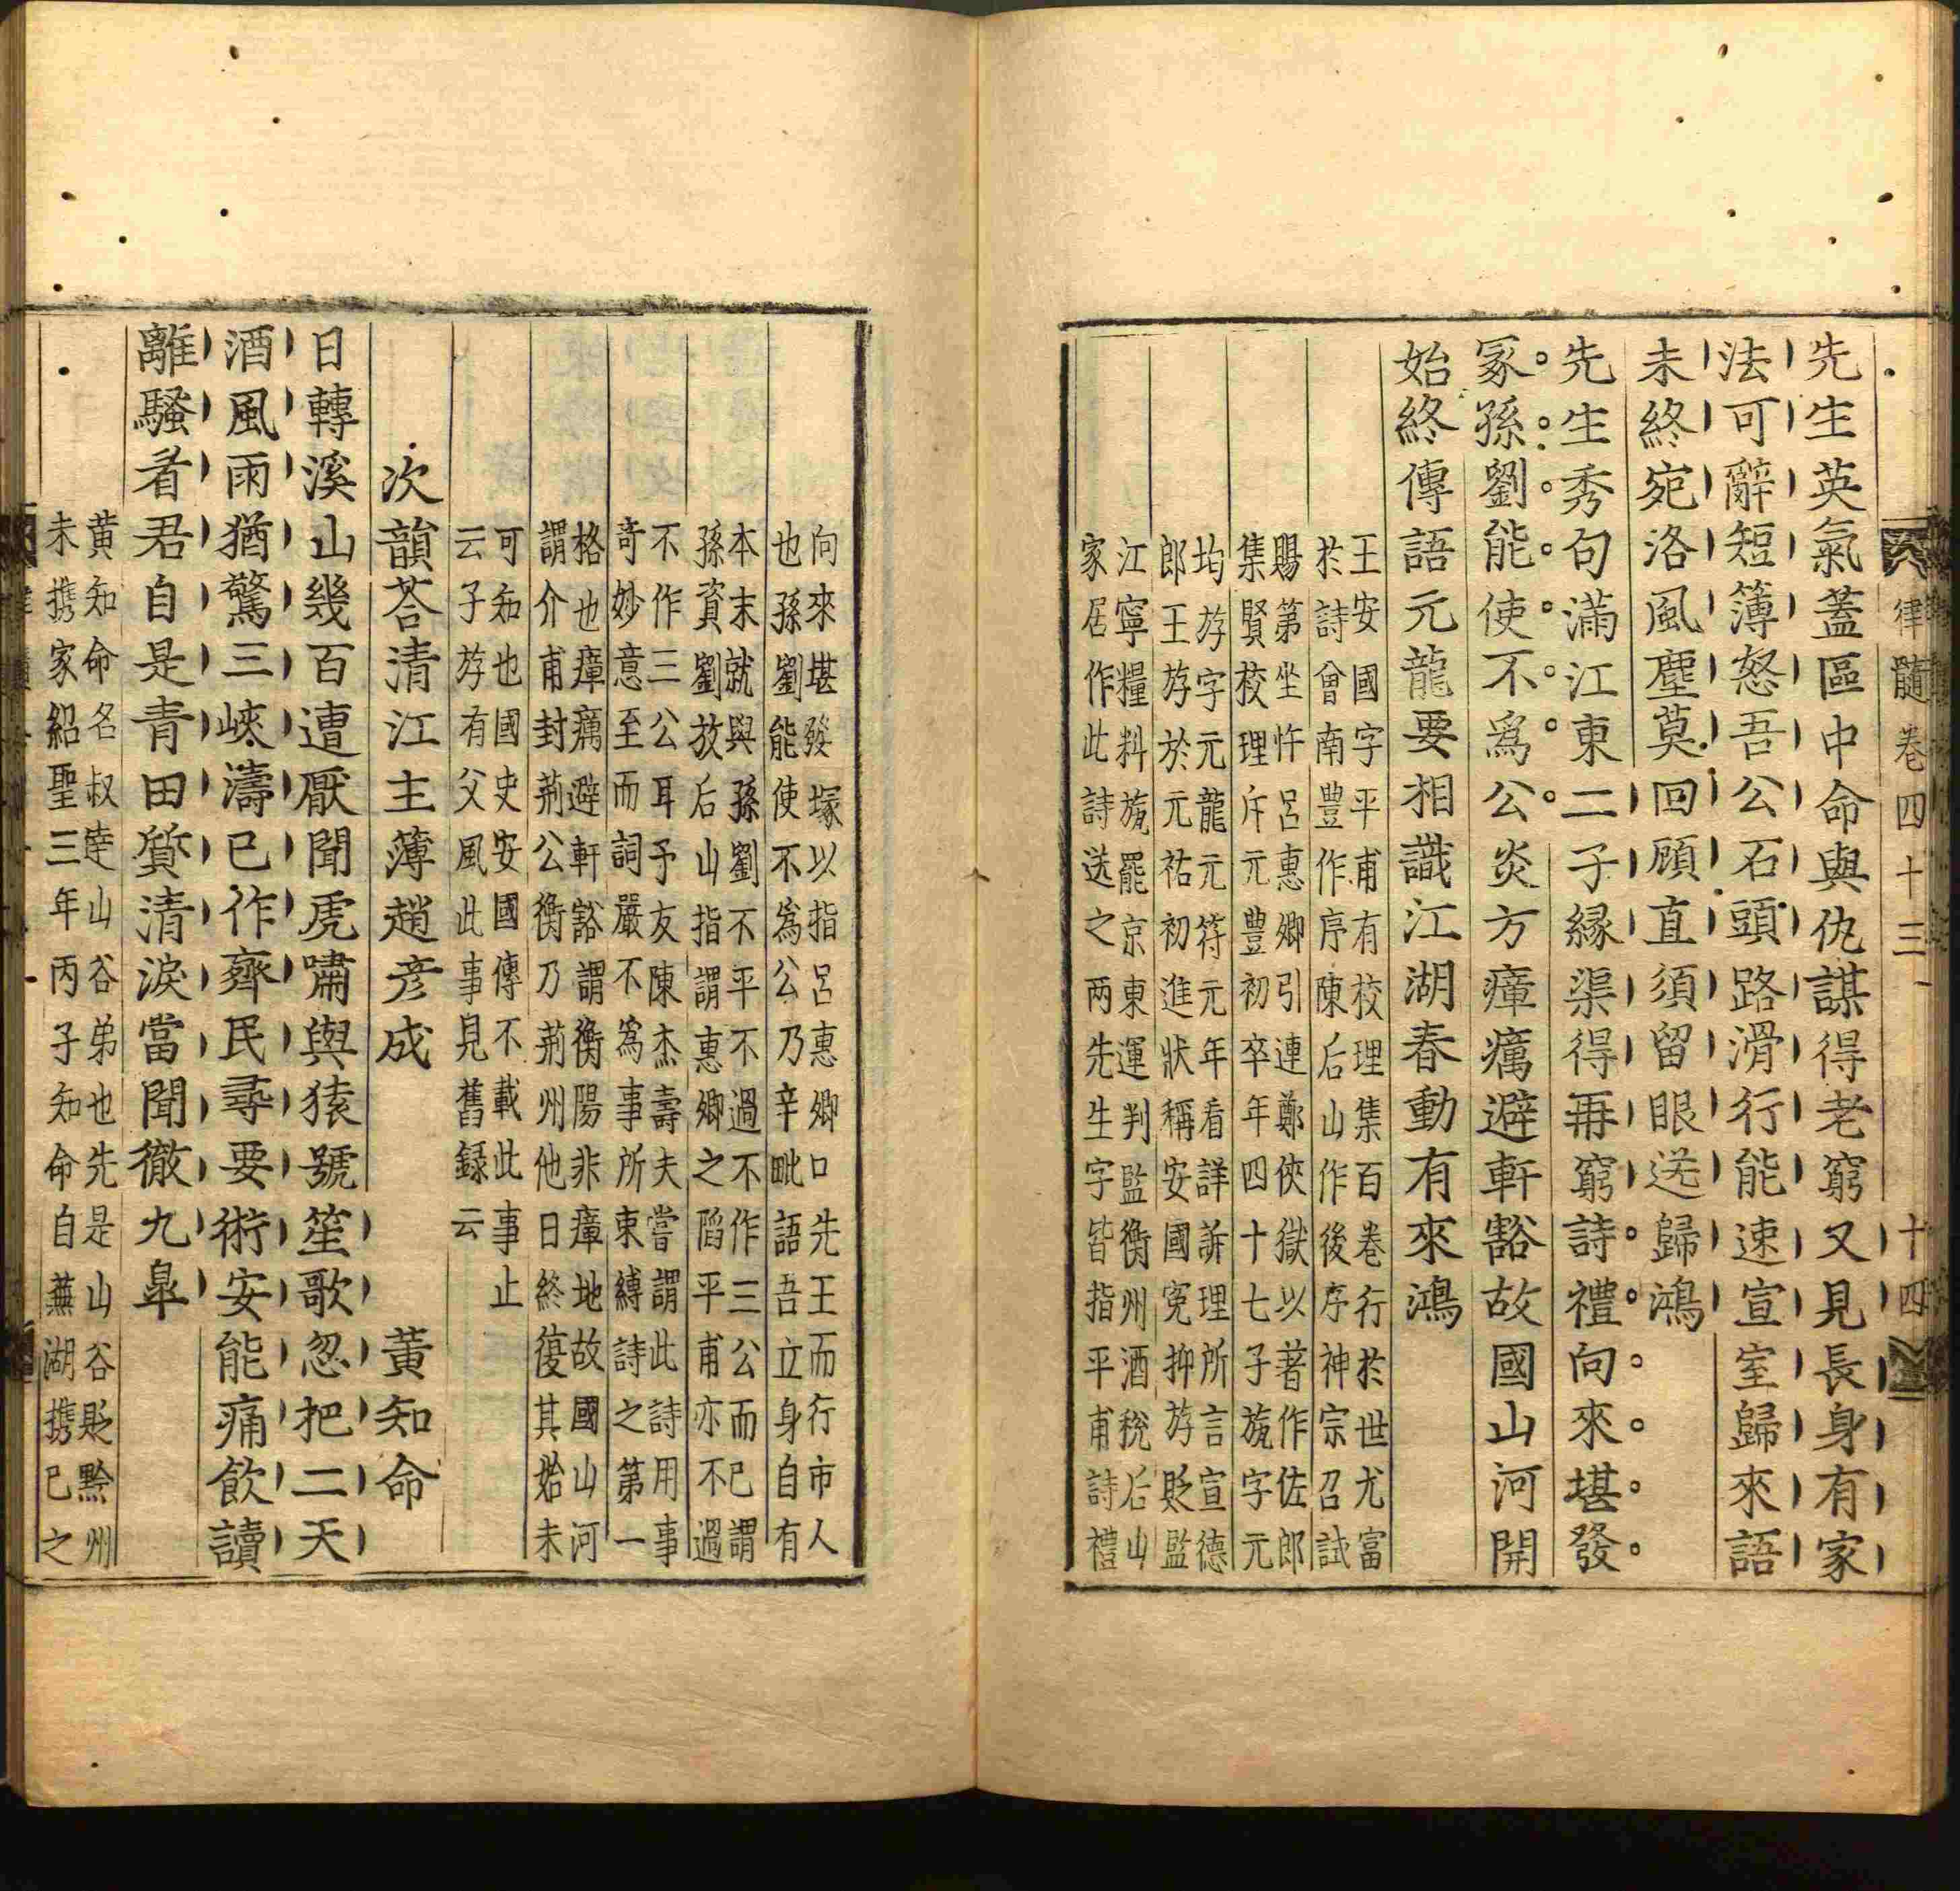 律髓卷四十三
十四
先生英氣蓋區中命與仇謀得老窮又見長身有家
法可辭短簿怒吾公石頭路滑行能速宣室歸來語
未終宛洛風塵莫回顧直須留眼送歸鴻
先生秀句滿江東二子緣渠得再窮詩禮向來堪發
冢孫劉能使不爲公炎方瘴癘避軒豁故國山河開
始終傳語元龍要相識江湖春動有來鴻
王安國字平甫有校理集百卷行於世尤富
於詩曾南豐作序陳后山作後序神宗召試
賜第坐忤呂惠卿引連鄭俠獄以著作佐郎
集賢校理斥元豐初卒年四十七子斿字元
均斿字元龍元符元年看詳訴理所言宣德
郎王斿於元祐初進狀稱安國寃抑斿貶監
江寧糧料旊罷京東運判監衡州酒稅后山
家居作此詩送之兩先生字皆指平甫詩禮
向來堪發塚以指呂惠卿口先王而行市人
也孫劉能使不爲公乃辛毗語吾立身自有
本末就與孫劉不平不過不作三公而已謂
孫資劉放后山指謂惠卿之陷平甫亦不過
不作三公耳予友陳杰壽夫嘗謂此詩用事
奇妙意至而詞嚴不爲事所束縛詩之第一
格也瘴癘避軒豁謂衡陽非瘴地故國山河
謂介甫封荆公衡乃荆州他日終復其始未
可知也國史安國傳不載此事止
云子斿有父風此事見舊録云
次韻荅清江主薄趙彥成
黃知命
日轉溪山幾百遭厭聞虎嘯與猿號笙歌忽把二天
酒風雨猶驚三峽濤已作齊民尋要術安能痛飲讀
離騷看君自是青田質清淚當聞徹九臯
黃知命名叔達山谷弟也先是山谷貶黔州
未携家紹聖三年丙子知命自蕪湖携已之